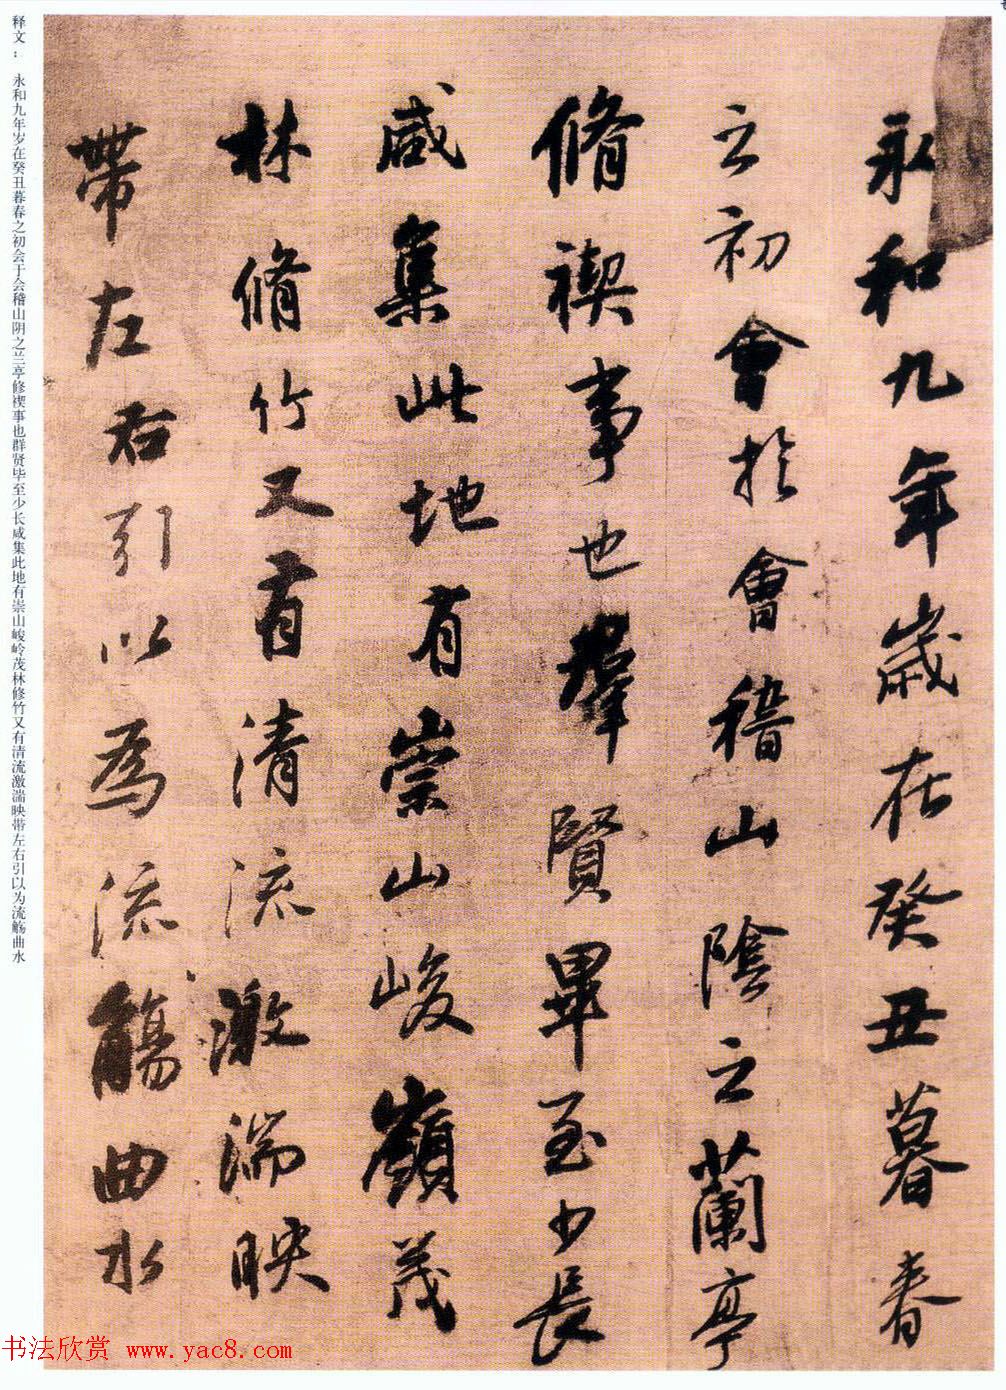 永和九年歲在癸丑暮春
之初會於會稽山陰之蘭亭
脩禊事也羣賢畢至少長
咸集此地有崇山峻嶺茂
林脩竹又有清流激湍映
帶左右引以為流觴曲水
释文： 永和九年岁在癸丑暮春之初会于会稽山阴之兰亭修禊事也群贤毕至少长咸集此地有崇山峻岭茂林修竹又有清流激湍映带左右引以为流觞曲水
书法欣赏 www.yac8.com